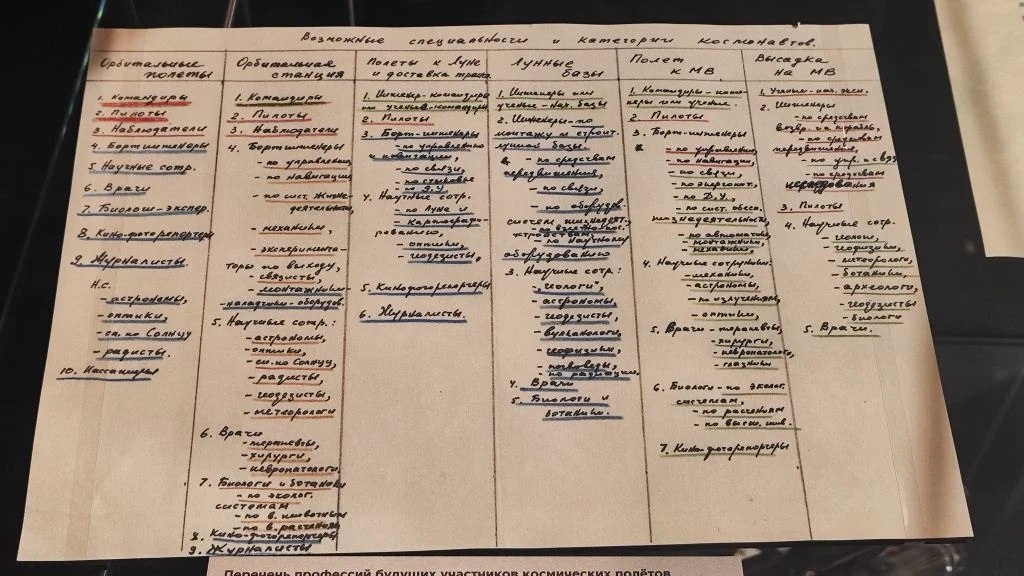 Возможные специальности и категории космонавтов.
Орбитальные
полеты
1. Командиры
2. Пилоты
3. Наблюдатели
4. Бортинженеры
5. Научные сотр.
6. Врачи
7. Биологи-экспер.
8. Кино-фоторепортеры
9. Журналисты.
Н.С.
- астрономы,
- оптики,
- сп. по Солнцу
- радисты.
10. Пассажиры
Орбитальная
станция
1. Командиры
2. Пилоты
3. Наблюдатели
4. Бортинженеры
- по управлению,
- по навигации,
- по сист. жизне-
деятельности,
- механики,
- эксперимента-
торы по выходу,
- связисты,
- монтажники
- наладчики оборудов.
5. Научные сотр.:
- астрономы,
- оптики,
- сп. по Солнцу
- радисты,
- геодезисты,
- метеорологи
6. Врачи
- терапевты,
- хирурги,
- невропатологи,
7. Биологи и ботаники
- по эколог.
системам
- по в. животным
- по в. растениям
8. Кино-фоторепортеры
9. Журналисты
Полеты к Луне
и доставка трансп.
1. Инженер-командиры
или ученые-командиры
2. Пилоты
3. Борт-инженеры
- по управлению
и навигации,
- по связи,
- по стыковке
- по Д.У.
4. Научные сотр.
- по Луне и
картографи-
рованию,
- оптики,
- геодезисты,
5. Кинофоторепортеры
6. Журналисты.
Лунные
базы
1. Инженеры или
ученые-нач. базы
2. Инженеры-по
монтажу и строит.
лунной базы.
- по средствам
передвижения,
- по связи,
- по оборудов.
систем жизнедеят.,
- по научному
оборудованию
3. Научные сотр.:
- геологи,
- астрономы,
- геодезисты,
- вулканологи,
- геофизики,
- почвоведы,
- по радиации.
4. Врачи
5. Биологи и
ботаники.
Полет
к МВ
1. Командиры-инже-
неры или ученые.
2. Пилоты
3. Борт-инженеры
- по управлению,
- по навигации,
- по связи,
- по энергопит.,
- по Д.У.,
- по сист. обесп.
жизнедеятельности,
- по автоматике,
- монтажники,
- механики,
4. Научные сотрудники
- механики,
- астрономы,
- по излучениям,
- оптики,
5. Врачи - терапевты,
- хирурги,
- невропатологи,
- глазники
6. Биологи - по эколог.
системам,
- по растениям
- по высш. жив.
7. Кино-фоторепортеры
Высадка
на МВ
1. Ученые-нач. эксп.
2. Инженеры
- по средствам
возвр. на корабль,
- по средствам
передвижения,
- по упр. и связи
- по средствам
3. Пилоты
4. Научные сотр.
- геологи,
- геофизики,
- метеорологи,
- ботаники,
- археологи,
- геодезисты
- биологи
5. Врачи.
Перечень профессий будущих участников космических полётов